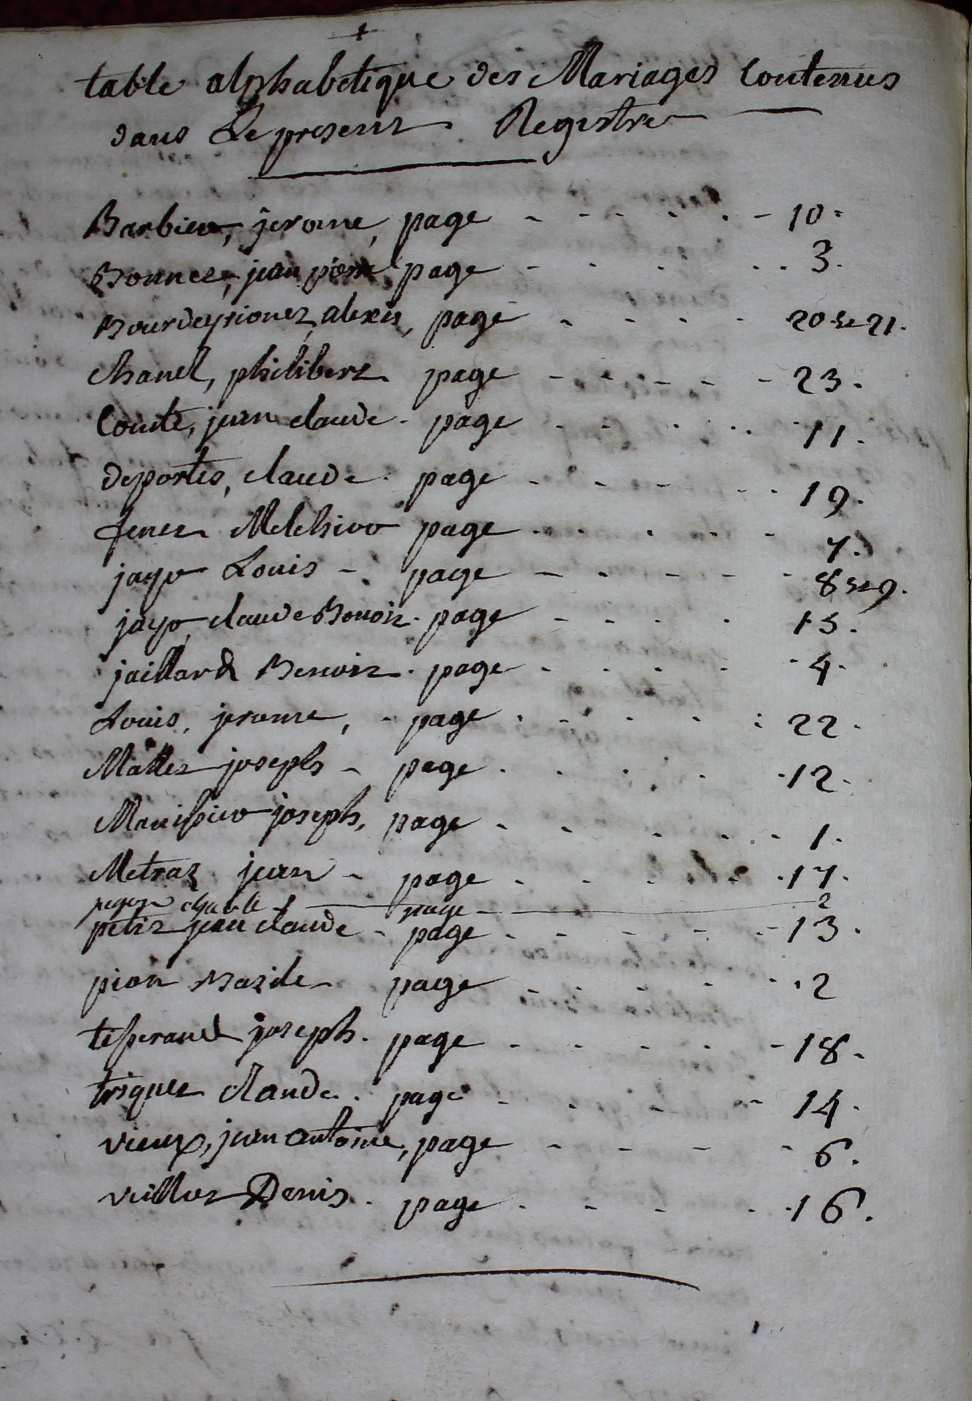 table alphabetique des Mariages Contenus
dans Le present Registre
Barbier, jerome, page - - - - - 10.
Bonnet, jean pierre page - - - - 3.
Bourdeyrionet, alexis, page - - - - 20 et 21.
Chanel, philibert page - - - - - 23.
Comte, jean claude. page - - - - - 11.
deportes, claude. page - - - - - 19.
fenet Melchior page - - - - - 7.
jayr Louis - page - - - - - 8 et 9.
jayr, claude Benoit. page - - - - 15.
jaillard Benoit. page - - - - 4.
Louis, jerome, - page - - - - 22.
Mallet joseph - page - - - - 12.
joseph, page - - - - - 1.
Metraz jean - page - - - - - 17.
page 2
petit jean claude - page - - - - - 13.
pion Bazile - page - - - - - 2
tisserand joseph. page - - - - - 18.
triquet claude. page - - - - 14.
vieux, jean antoine, page - - - - - 6.
veillet Denis. page - - - - 16.